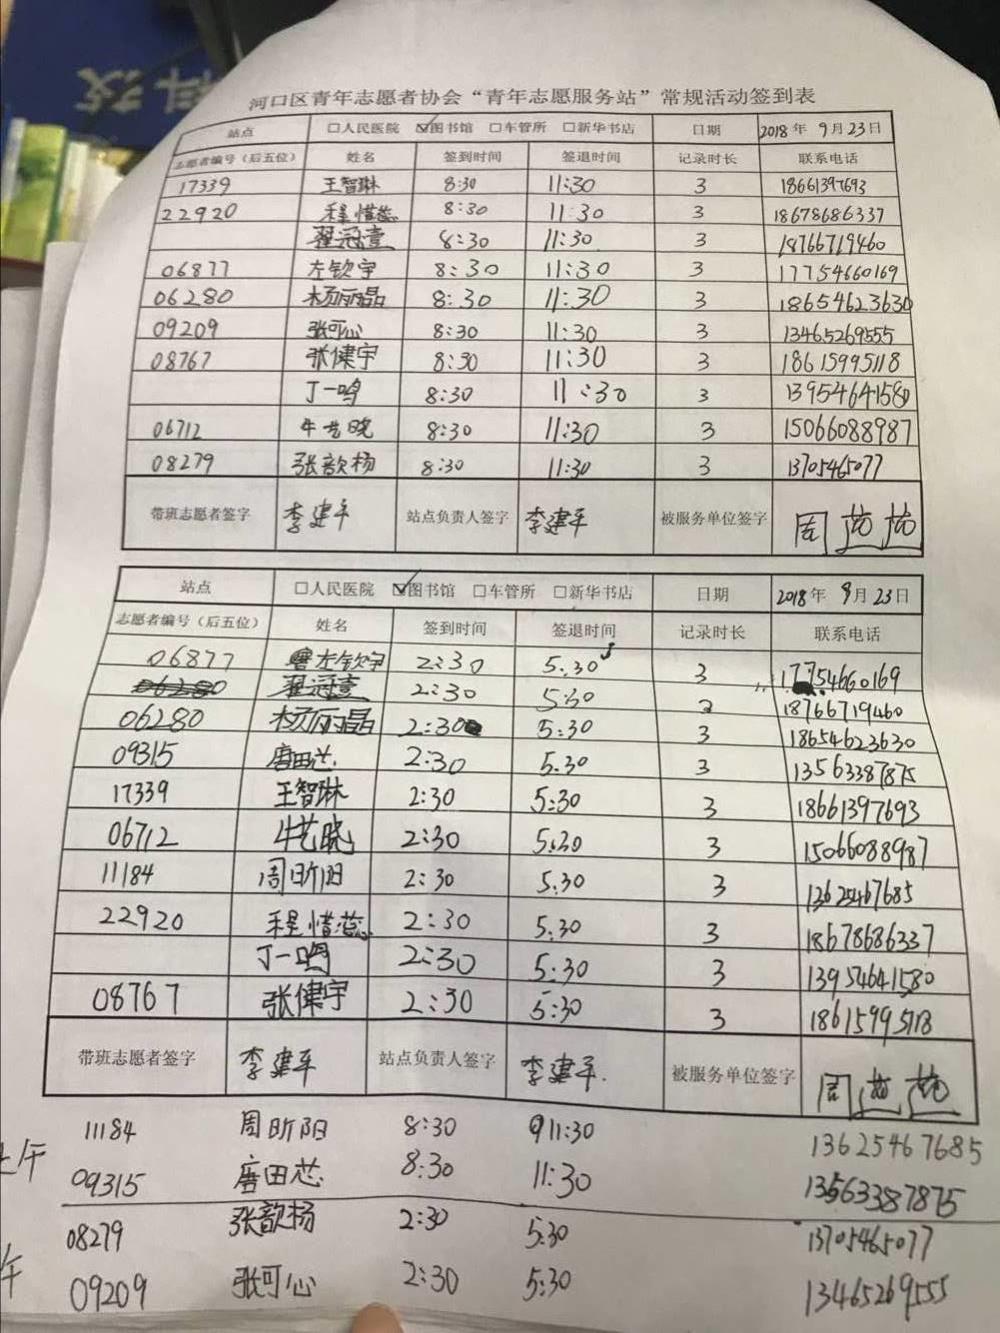 科技
河口区青年志愿者协会“青年志愿服务站”常规活动签到表
站点 □人民医院 ☑图书馆 □车管所 □新华书店 日期 2018年 9月23日
志愿者编号（后五位） 姓名 签到时间 签退时间 记录时长 联系电话
17339 王智琳 8:30 11:30 3 18661397693
22920 程惜蕊 8:30 11:30 3 18678686337
翟冠壹 8:30 11:30 3 18766719460
06877 左钦宇 8:30 11:30 3 17754660169
06280 杨丽晶 8:30 11:30 3 18654623630
09209 张可心 8:30 11:30 3 13465269555
08767 张健宇 8:30 11:30 3 18615995118
丁一鸣 8:30 11:30 3 13954641580
06712 牛艺晓 8:30 11:30 3 15066088987
08279 张歆杨 8:30 11:30 3 13705465077
带班志愿者签字 李建平 站点负责人签字 李建平 被服务单位签字 周
站点 □人民医院 ☑图书馆 □车管所 □新华书店 日期 2018年 9月23日
志愿者编号（后五位） 姓名 签到时间 签退时间 记录时长 联系电话
06877 左钦宇 2:30 5:30 3 17754660169
06280 翟冠壹 2:30 5:30 3 18766719460
06280 杨丽晶 2:30 5:30 3 18654623630
09315 唐田芯 2:30 5:30 3 13563387875
17339 王智琳 2:30 5:30 3 18661397693
06712 牛艺晓 2:30 5:30 3 15066088987
11184 周昕阳 2:30 5:30 3 13625467685
22920 程惜蕊 2:30 5:30 3 18678686337
丁一鸣 2:30 5:30 3 13954641580
08767 张健宇 2:30 5:30 3 18615995118
带班志愿者签字 李建平 站点负责人签字 李建平. 被服务单位签字 周
上午 11184 周昕阳 8:30 11:30 13625467685
09315 唐田芯 8:30 11:30 13563387875
08279 张歆杨 2:30 5:30 13705465077
午 09209 张可心 2:30 5:30 13465269555